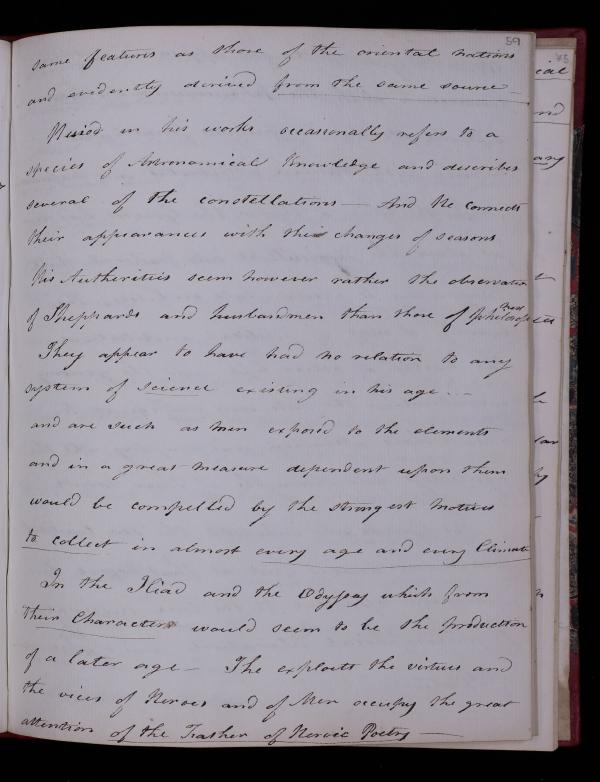 59
same features as those of the oriental nations
and evidently derived from the same source
Hesiod in his works occasionally refers to a
species of Astronomical Knowledge and describes
several of the constellations — And He connects
their appearances with the changes of seasons
His Authorities seem however rather the observation
of Sheppards and husbandmen than those of philosop
They appear to have had no relation to any
system of science existing in his age . --
and are such as men exposed to the elements
and in a great measure dependent upon them
would be compelled by the strongest motives
to collect in almost every age and every Climate
In the Iliad and the Odyssey which from
their Characters would seem to be the production
of a later age — The exploits the virtues and
the vices of Heroes and of Men occupy the great
attention of the Father of Heroic Poetry —